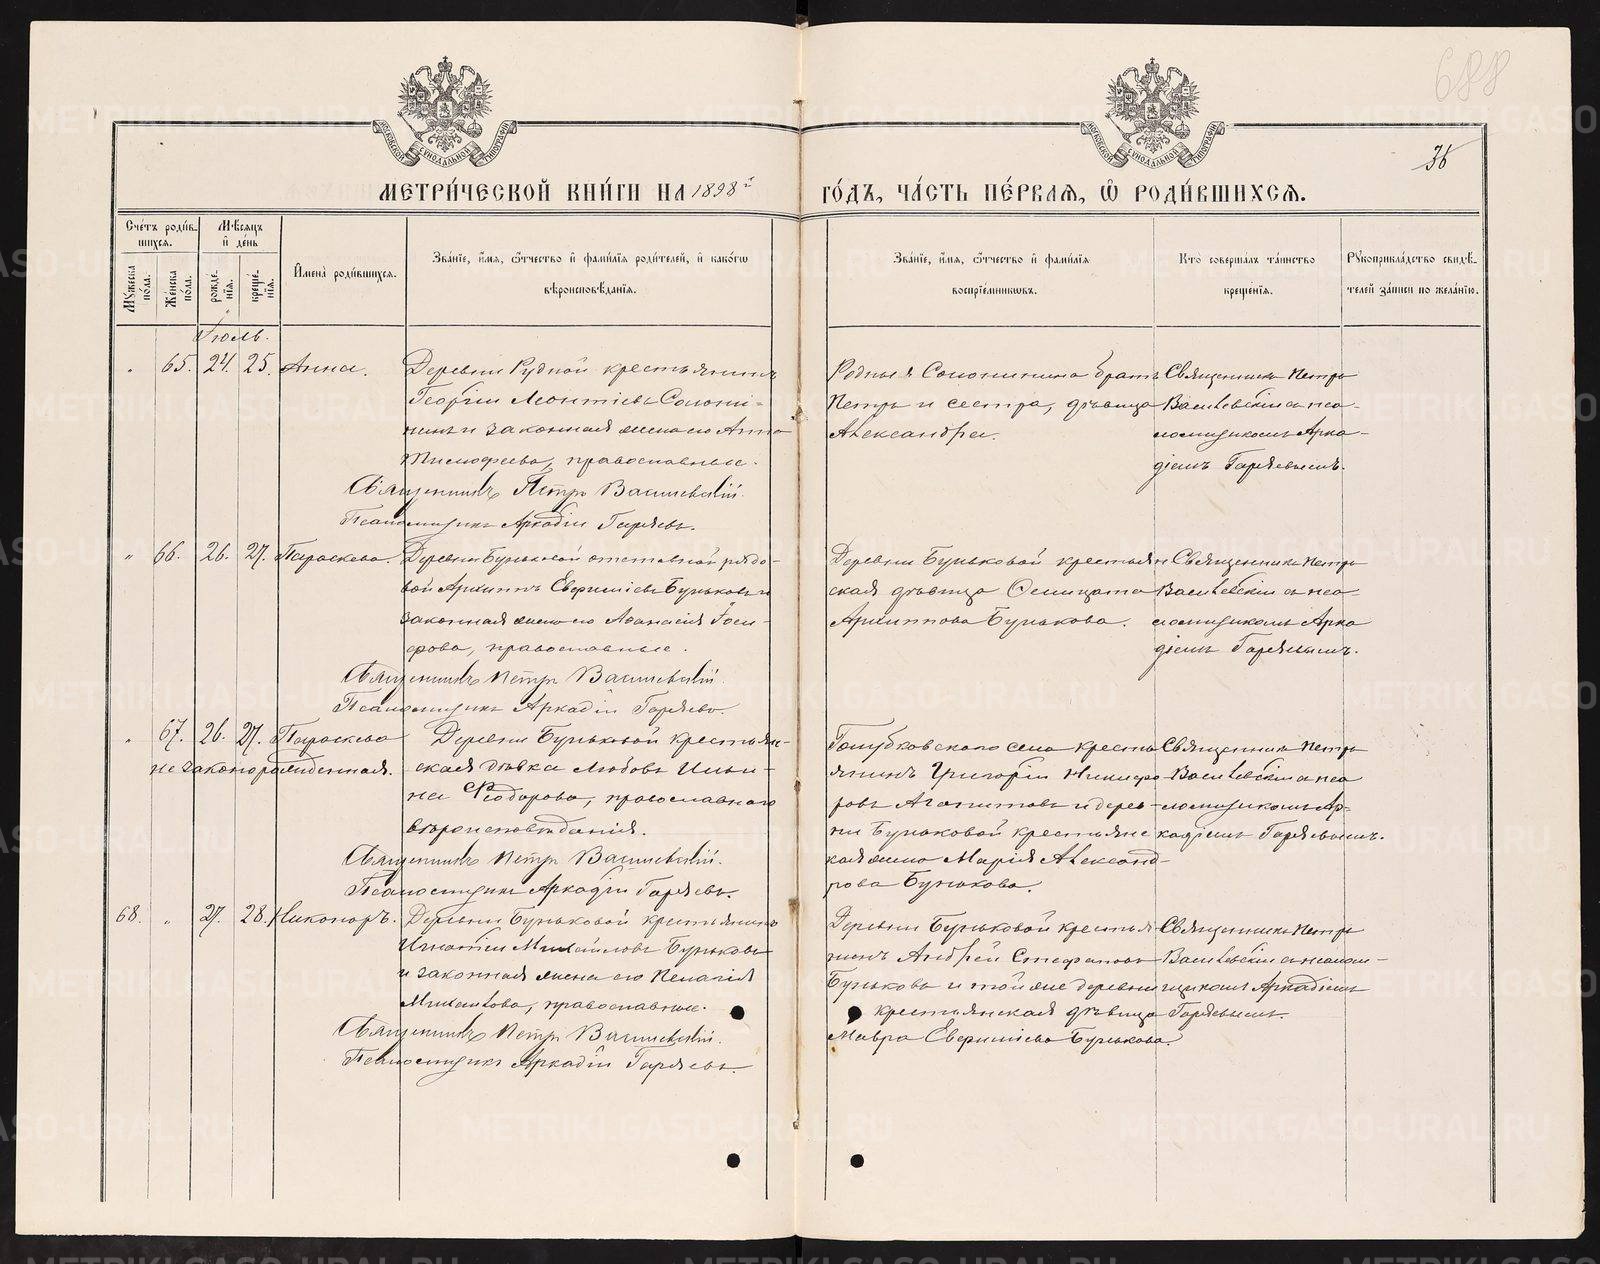 688
36
МЕТРИ́ЧЕСКОЙ КНИ́ГИ НА 1898й
ГО́ДЪ, ЧА́СТЬ ПЕ́РВАЯ, Ѡ РОДИ́ВШИХСЯ.
Сче́тъ роди́в-
шихся.
Мѣ́сяцъ
и де́нь
Му́жеска по́ла.
Же́нска по́ла.
рожде́нія.
креще́нія.
Имена̀ роди́вшихся.
Зва́ніе, и́мя, о́тчество и фами́лія роди́телей, и како́гѡ
вѣроисповѣ́данія.
Зва́ніе, и́мя, о́тчество и фами́лія
воспріе́мниковъ.
Кто̀ соверша́лъ та́инство
креще́нія.
Рукоприкла́дство свидѣ́-
телей за́писи по жела́нію.
Іюль.
" 65. 24. 25. Анна.
Деревни Рудной крестьянинъ
Георгій Леонтіевъ Солони-
нинъ и законная жена его Анна
Тимофеева, православные.
Священникъ Петръ Василевскій.
Псаломщикъ Аркадій Гаряевъ.
Родные Солонинина братъ
Петръ и сестра, дѣвица
Александра.
Священникъ Петръ
Василевскій съ пса-
ломщикомъ Арка-
діемъ Гаряевымъ.
" 66. 26. 27. Параскева.
Деревни Буньковой отставной рядо-
вой Архиппъ Евфиміевъ Буньковъ и
законная жена его Аѳанасія Іоси-
фова, православные.
Священникъ Петръ Василевскій.
Псаломщикъ Аркадій Гаряевъ.
Деревни Буньковой крестьян-
ская дѣвица
Архиппова Бунькова.
Священникъ Петръ
Василевскій съ пса
ломщикомъ Арка
діемъ Гаряевымъ.
" 67. 26. 27. Параскева
незаконорожденная.
Деревни Буньковой крестьян-
ская дѣвка Любовь Ильи-
на Ѳеодорова, православнаго
вѣроисповѣданія.
Священникъ Петръ Василевскій.
Псаломщикъ Аркадій Гаряевъ.
Голубковскаго села кресть
янинъ Григорій Никифо-
ровъ Агапитовъ и дерев-
ни Буньковой крестьянс
кая жена Марія Александ-
рова Бунькова.
Священникъ Петръ
Василевскій съ пса
ломщикомъ Ар-
кадіемъ Гаряевымъ.
68. " 27. 28. Никаноръ.
Деревни Буньковой крестьянинъ
Игнатій Михайловъ Буньковъ
и законная жена его Пелагія
Михайлова, православные.
Священникъ Петръ Василевскій.
Псаломщикъ Аркадій Гаряевъ.
Деревни Буньковой крестья
нинъ Андрей Стефановъ
Буньковъ и той же деревни
крестьянская дѣвица
Мавра Евфиміева Бунькова.
Священникъ Петръ
Василевскій съ псалом-
щикомъ Аркадіемъ
Гаряевымъ.
METRIKI.GASO-URAL.RU